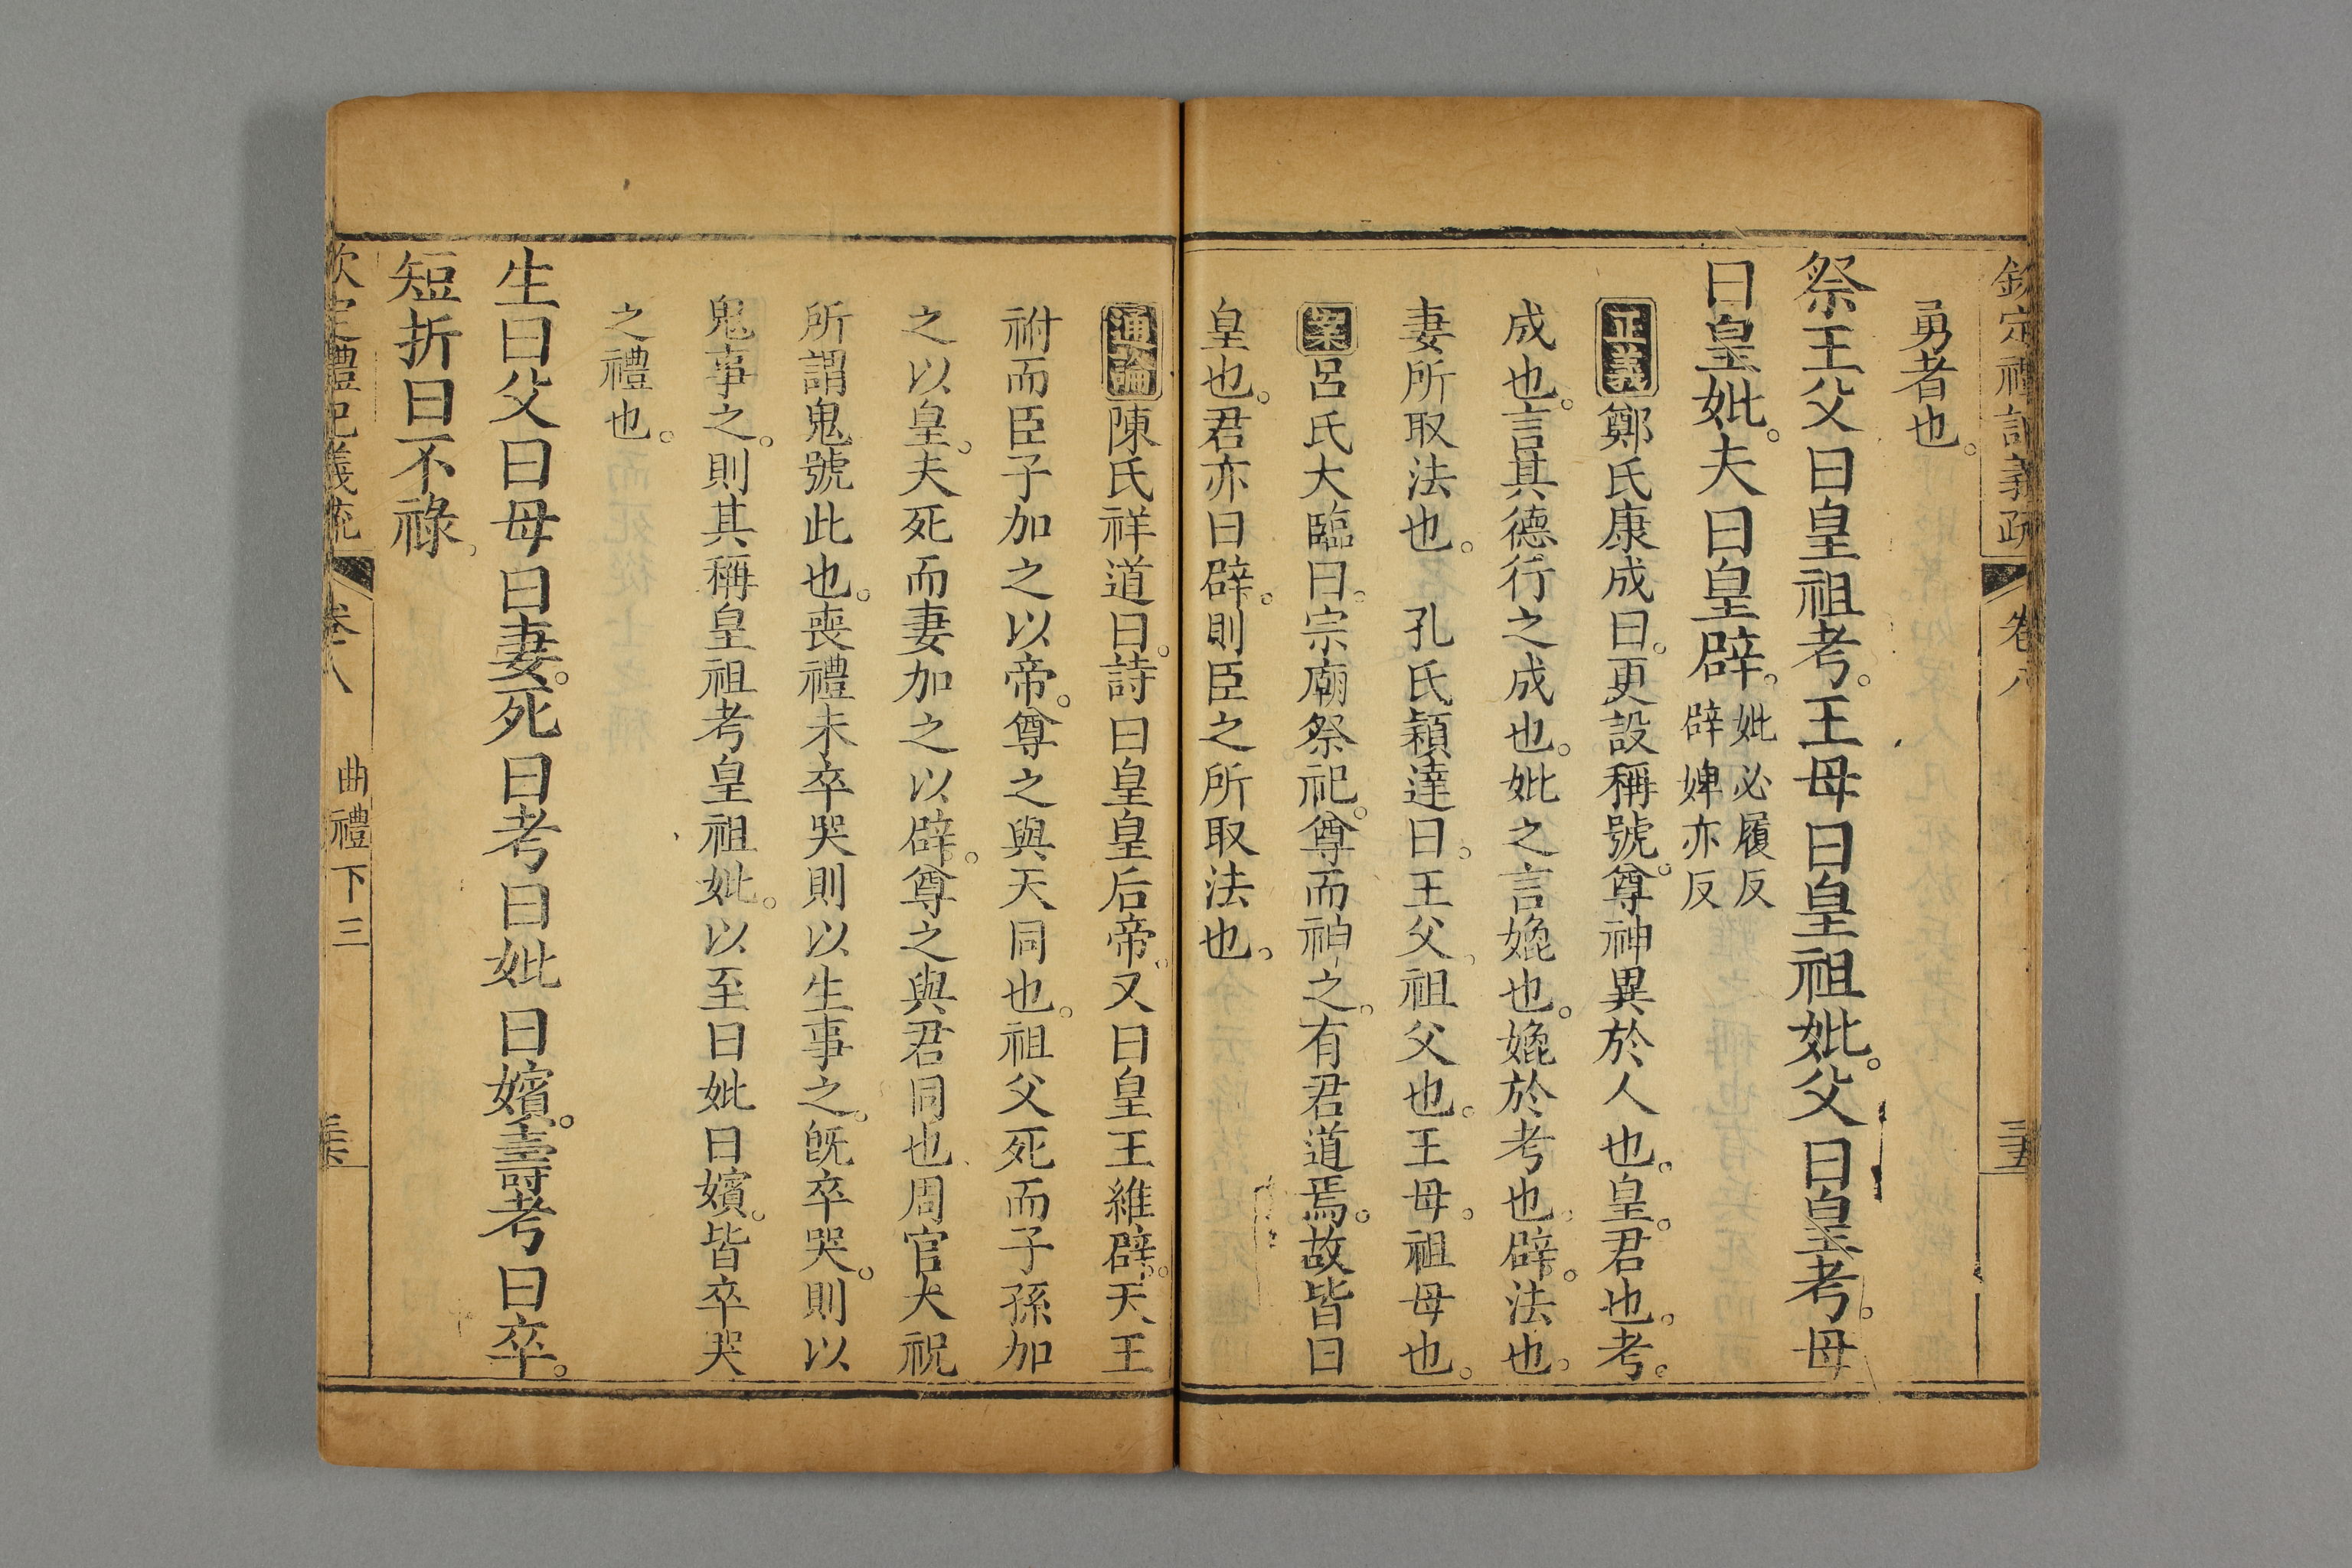 欽定禮記義疏 卷八 三五
勇者也。
祭王父曰皇祖考。王母曰皇祖妣。父曰皇考。母
曰皇妣。夫曰皇辟。妣必履反
辟婢亦反
正義鄭氏康成曰。更設稱號。尊神異於人也。皇。君也。考。
成也。言其德行之成也。妣之言媲也。媲於考也。辟。法也。
妻所取法也。 孔氏穎達曰。王父。祖父也。王母。祖母也。
案呂氏大臨曰。宗廟祭祀。尊而神之。有君道焉。故皆曰
皇也。君亦曰辟。則臣之所取法也。
通論陳氏祥道曰。詩曰皇皇后帝。又曰皇王維辟。天王
祔而臣子加之以帝。尊之與天同也。祖父死而子孫加
之以皇。夫死而妻加之以辟。尊之與君同也。周官大祝
所謂鬼號此也。喪禮未卒哭則以生事之。旣卒哭。則以
鬼事之。則其稱皇祖考皇祖妣。以至曰妣曰嬪。皆卒哭
之禮也。
生曰父曰母曰妻。死曰考曰妣曰嬪。壽考曰卒。
短折曰不祿。
欽定禮記義疏 卷八 曲禮下三